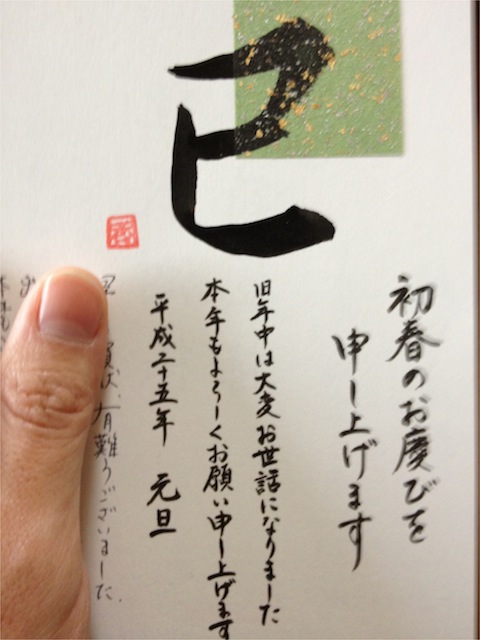 巳
初春のお慶びを
申し上げます
旧年中は大変お世話になりました
本年もよろしくお願い申し上げます
平成二十五年 元旦
賀状、有難うございました。